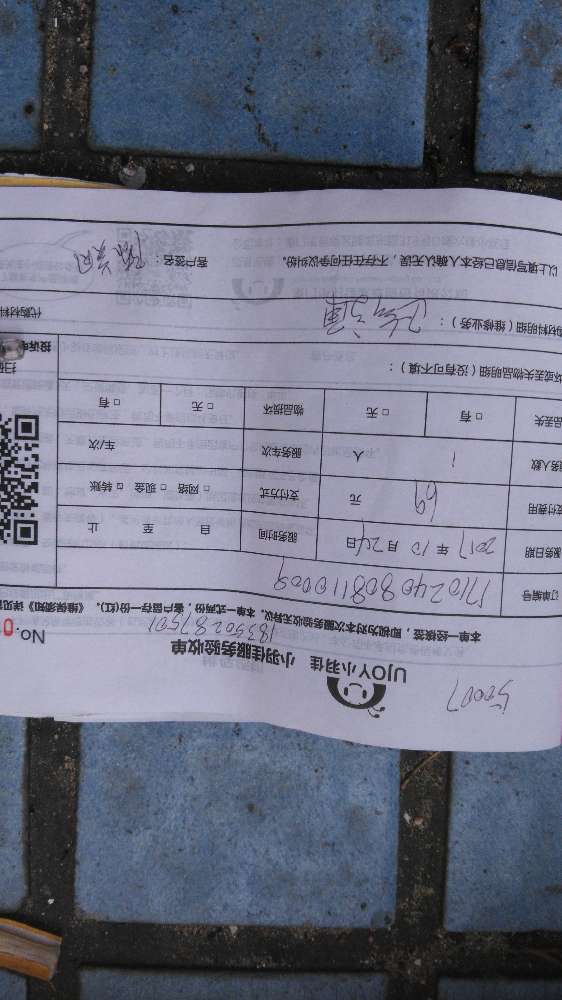 50007
UJOY小羽佳 小羽佳服务验收单
18350287501
No.0
本单一经核签,即视为对本次服务验收无异议。本单一式两份,客户留存一份(红)。《维保须知》详见
订单编号 1710240808110009
服务日期 2017 年 10 月 24 日 服务时间 自 至 止
支付费用 69 元 支付方式 □ 网络 □ 现金 □ 转账
服务人数 1 人 服务车次 车/次
品丢失 □ 有 □ 无 物品损坏 □ 无 □ 有
坏或丢失物品明细(没有可不填):
购材料明细(维修业务): 代购材料
投诉
以上填写信息已经本人确认无误,不存在任何争议纠纷。 客户签名: